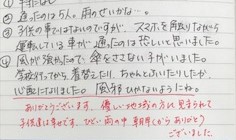 ① 手押しなし
② 通ったのは5人。雨のせいかな…。
③ 子供の事ではないのですが、スマホを角取りながら
運転している車が通ったのは恐しいと思いました。
④ 風が強かったので、傘をささない子がいました。
学校行ってから着替えたり、ちゃんとふいたりしたか、
心配になりました。風邪ひかないようにね。
ありがとうございます。優しい地域の方に見守られて
子供達は幸せです。ひどい雨の中 朝早くから ありがとう
ございました。